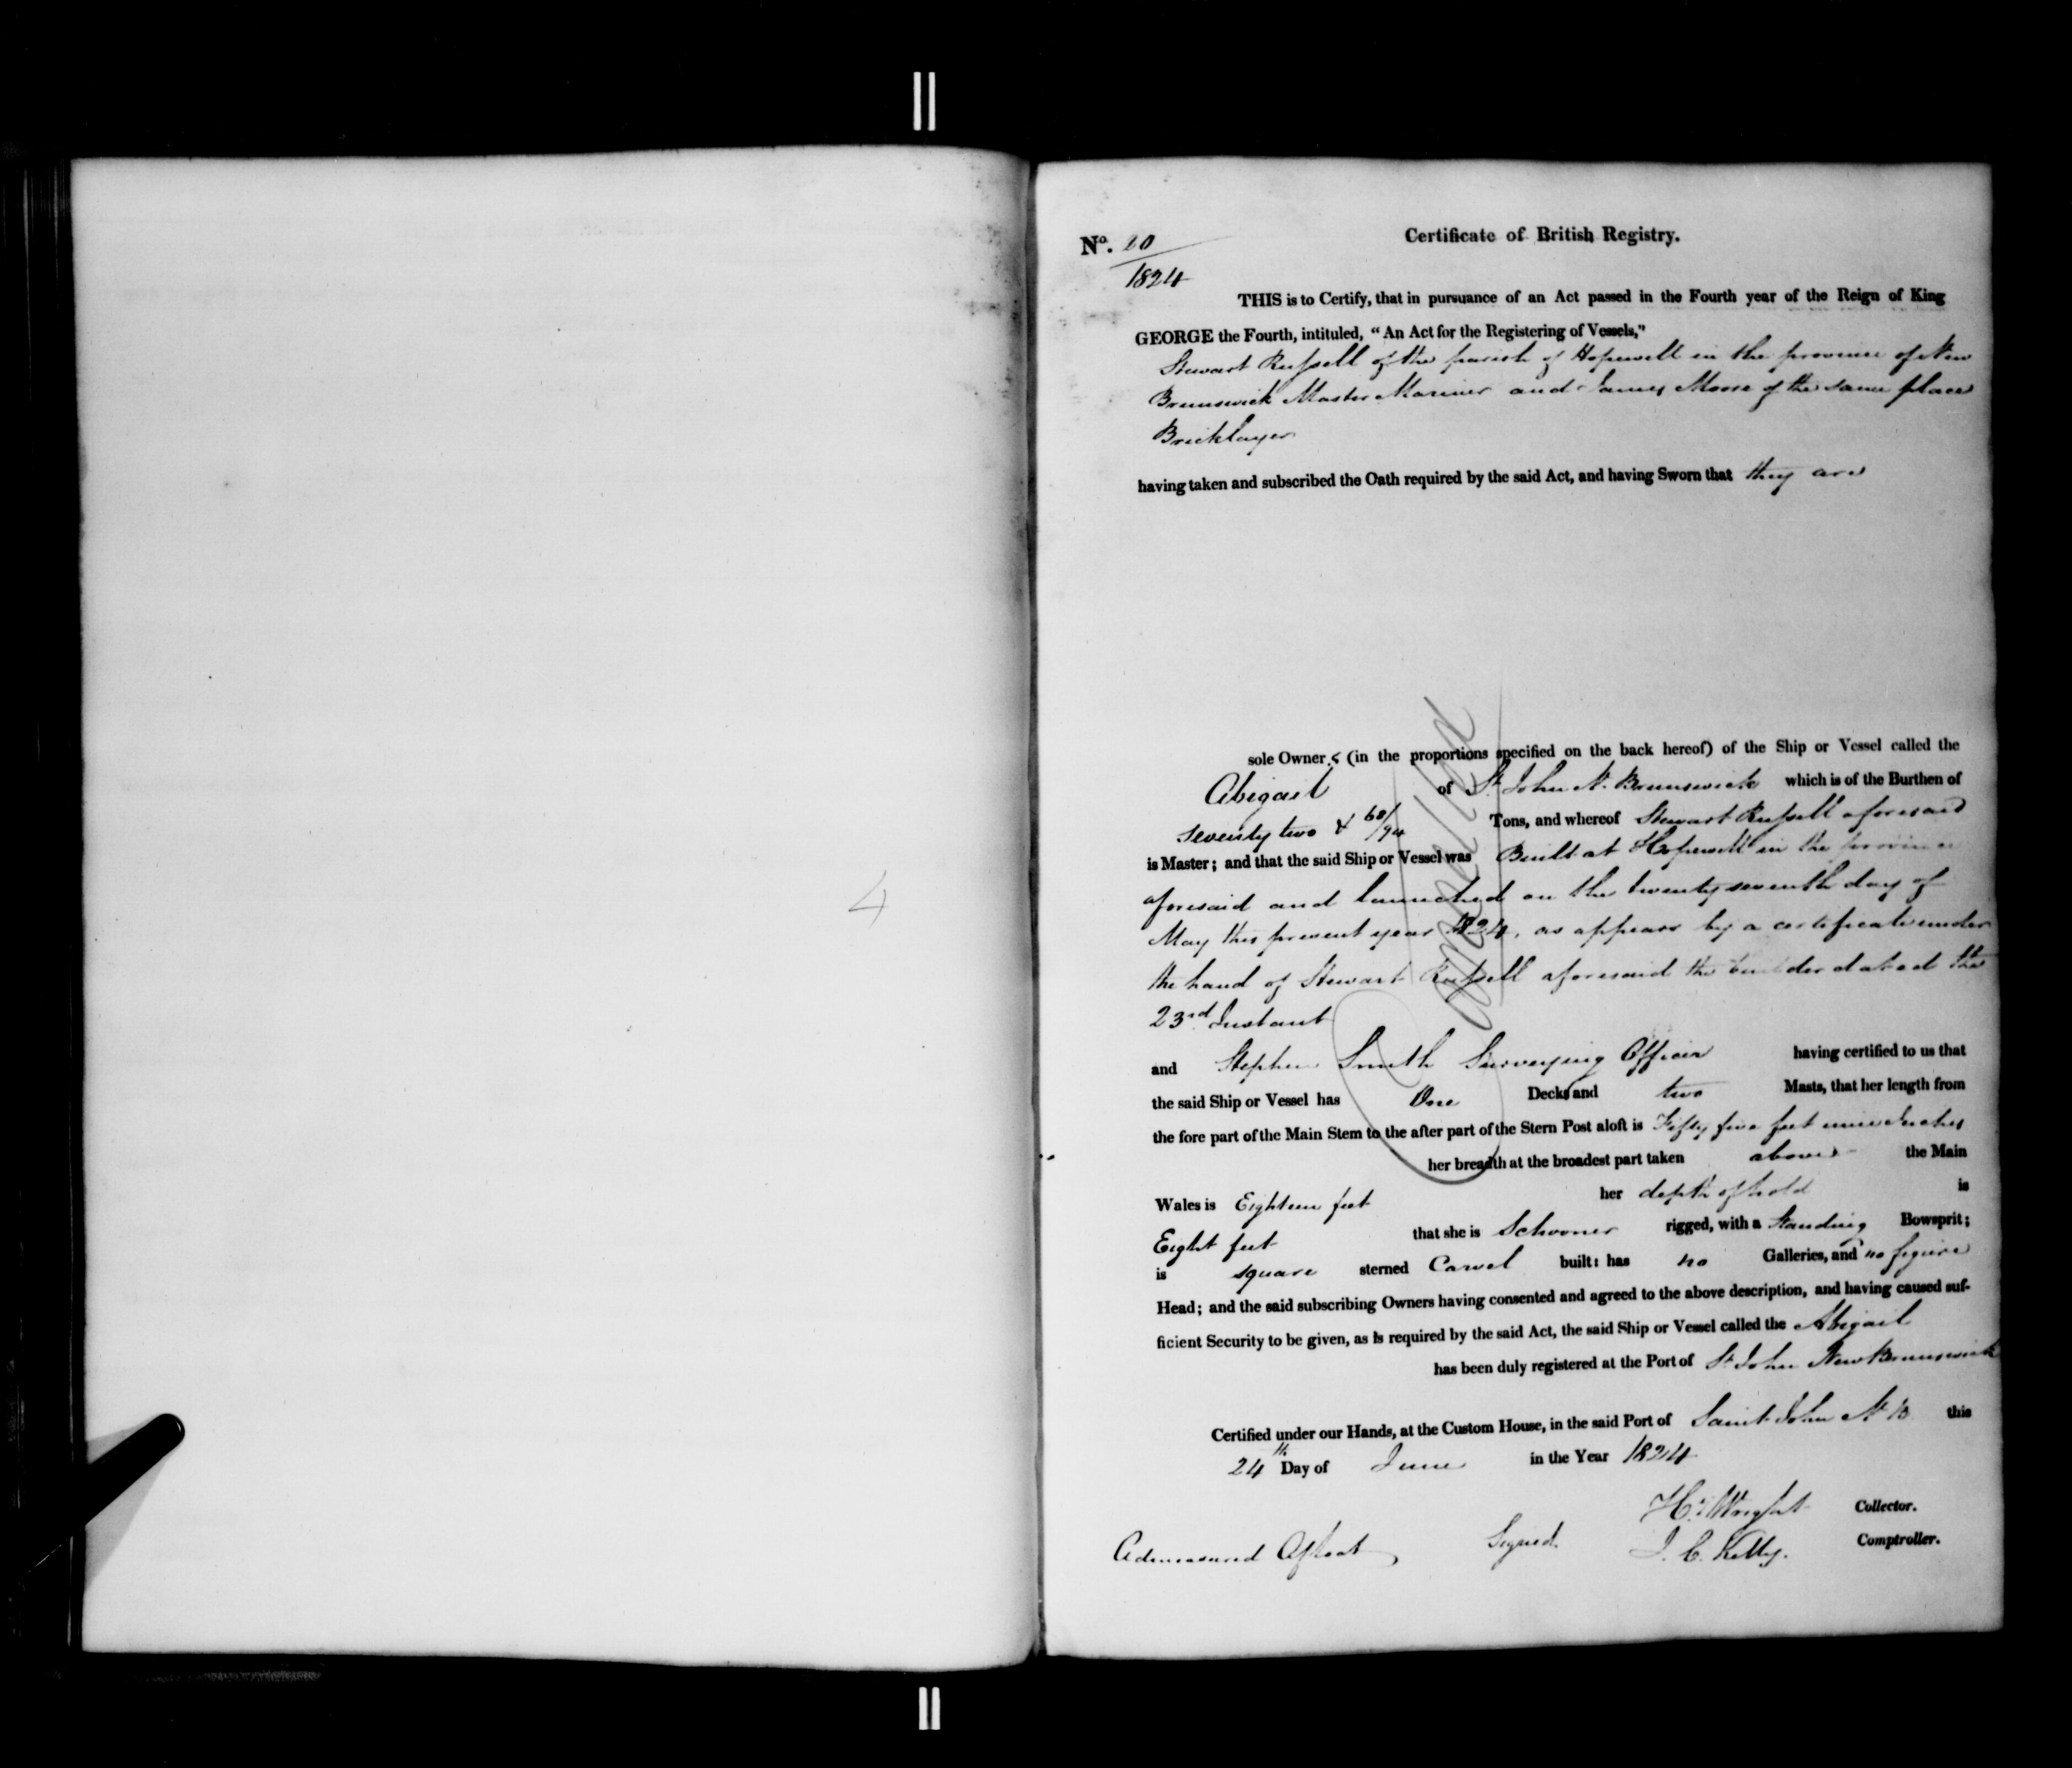 4
No. 20
1824
Certificate of British Registry.
THIS is to Certify, that in pursuance of an Act passed in the Fourth year of the Reign of King
GEORGE the Fourth, intituled, "An Act for the Registering of Vessels,"
Stewart Russell of the parish of Hopewell in the province of New
Brunswick Master Mariner and James Moore of the same place
Bricklayer
having taken and subscribed the Oath required by the said Act, and having Sworn that they are
Cancelled
sole Owners (in the proportions specified on the back hereof) of the Ship or Vessel called the
Abigail of St. John N. Brunswick which is of the Burthen of
seventy two & 68/94 Tons, and whereof Stewart Russell aforesaid
is Master; and that the said Ship or Vessel was Built at Hopewell in the province
aforesaid and launched on the twenty seventh day of
May this present year 1824, as appears by a certificate under
the hand of Stewart Russell aforesaid the builder dated the
23rd Instant
and Stephen Smith Surveying Officer having certified to us that
the said Ship or Vessel has One Deck and two Masts, that her length from
the fore part of the Main Stem to the after part of the Stern Post aloft is Fifty five feet nine Inches
her breadth at the broadest part taken above the Main
Wales is Eighteen feet her depth of hold is
Eight feet that she is Schooner rigged, with a Standing Bowsprit;
is square sterned Carvel built: has no Galleries, and no figure
Head; and the said subscribing Owners having consented and agreed to the above description, and having caused suf-
ficient Security to be given, as is required by the said Act, the said Ship or Vessel called the Abigail
has been duly registered at the Port of St. John New Brunswick
Certified under our Hands, at the Custom House, in the said Port of Saint John N B this
24th Day of June in the Year 1824
Signed. Hy. Wright Collector.
Admeasured Afloat J. C. Kelly. Comptroller.